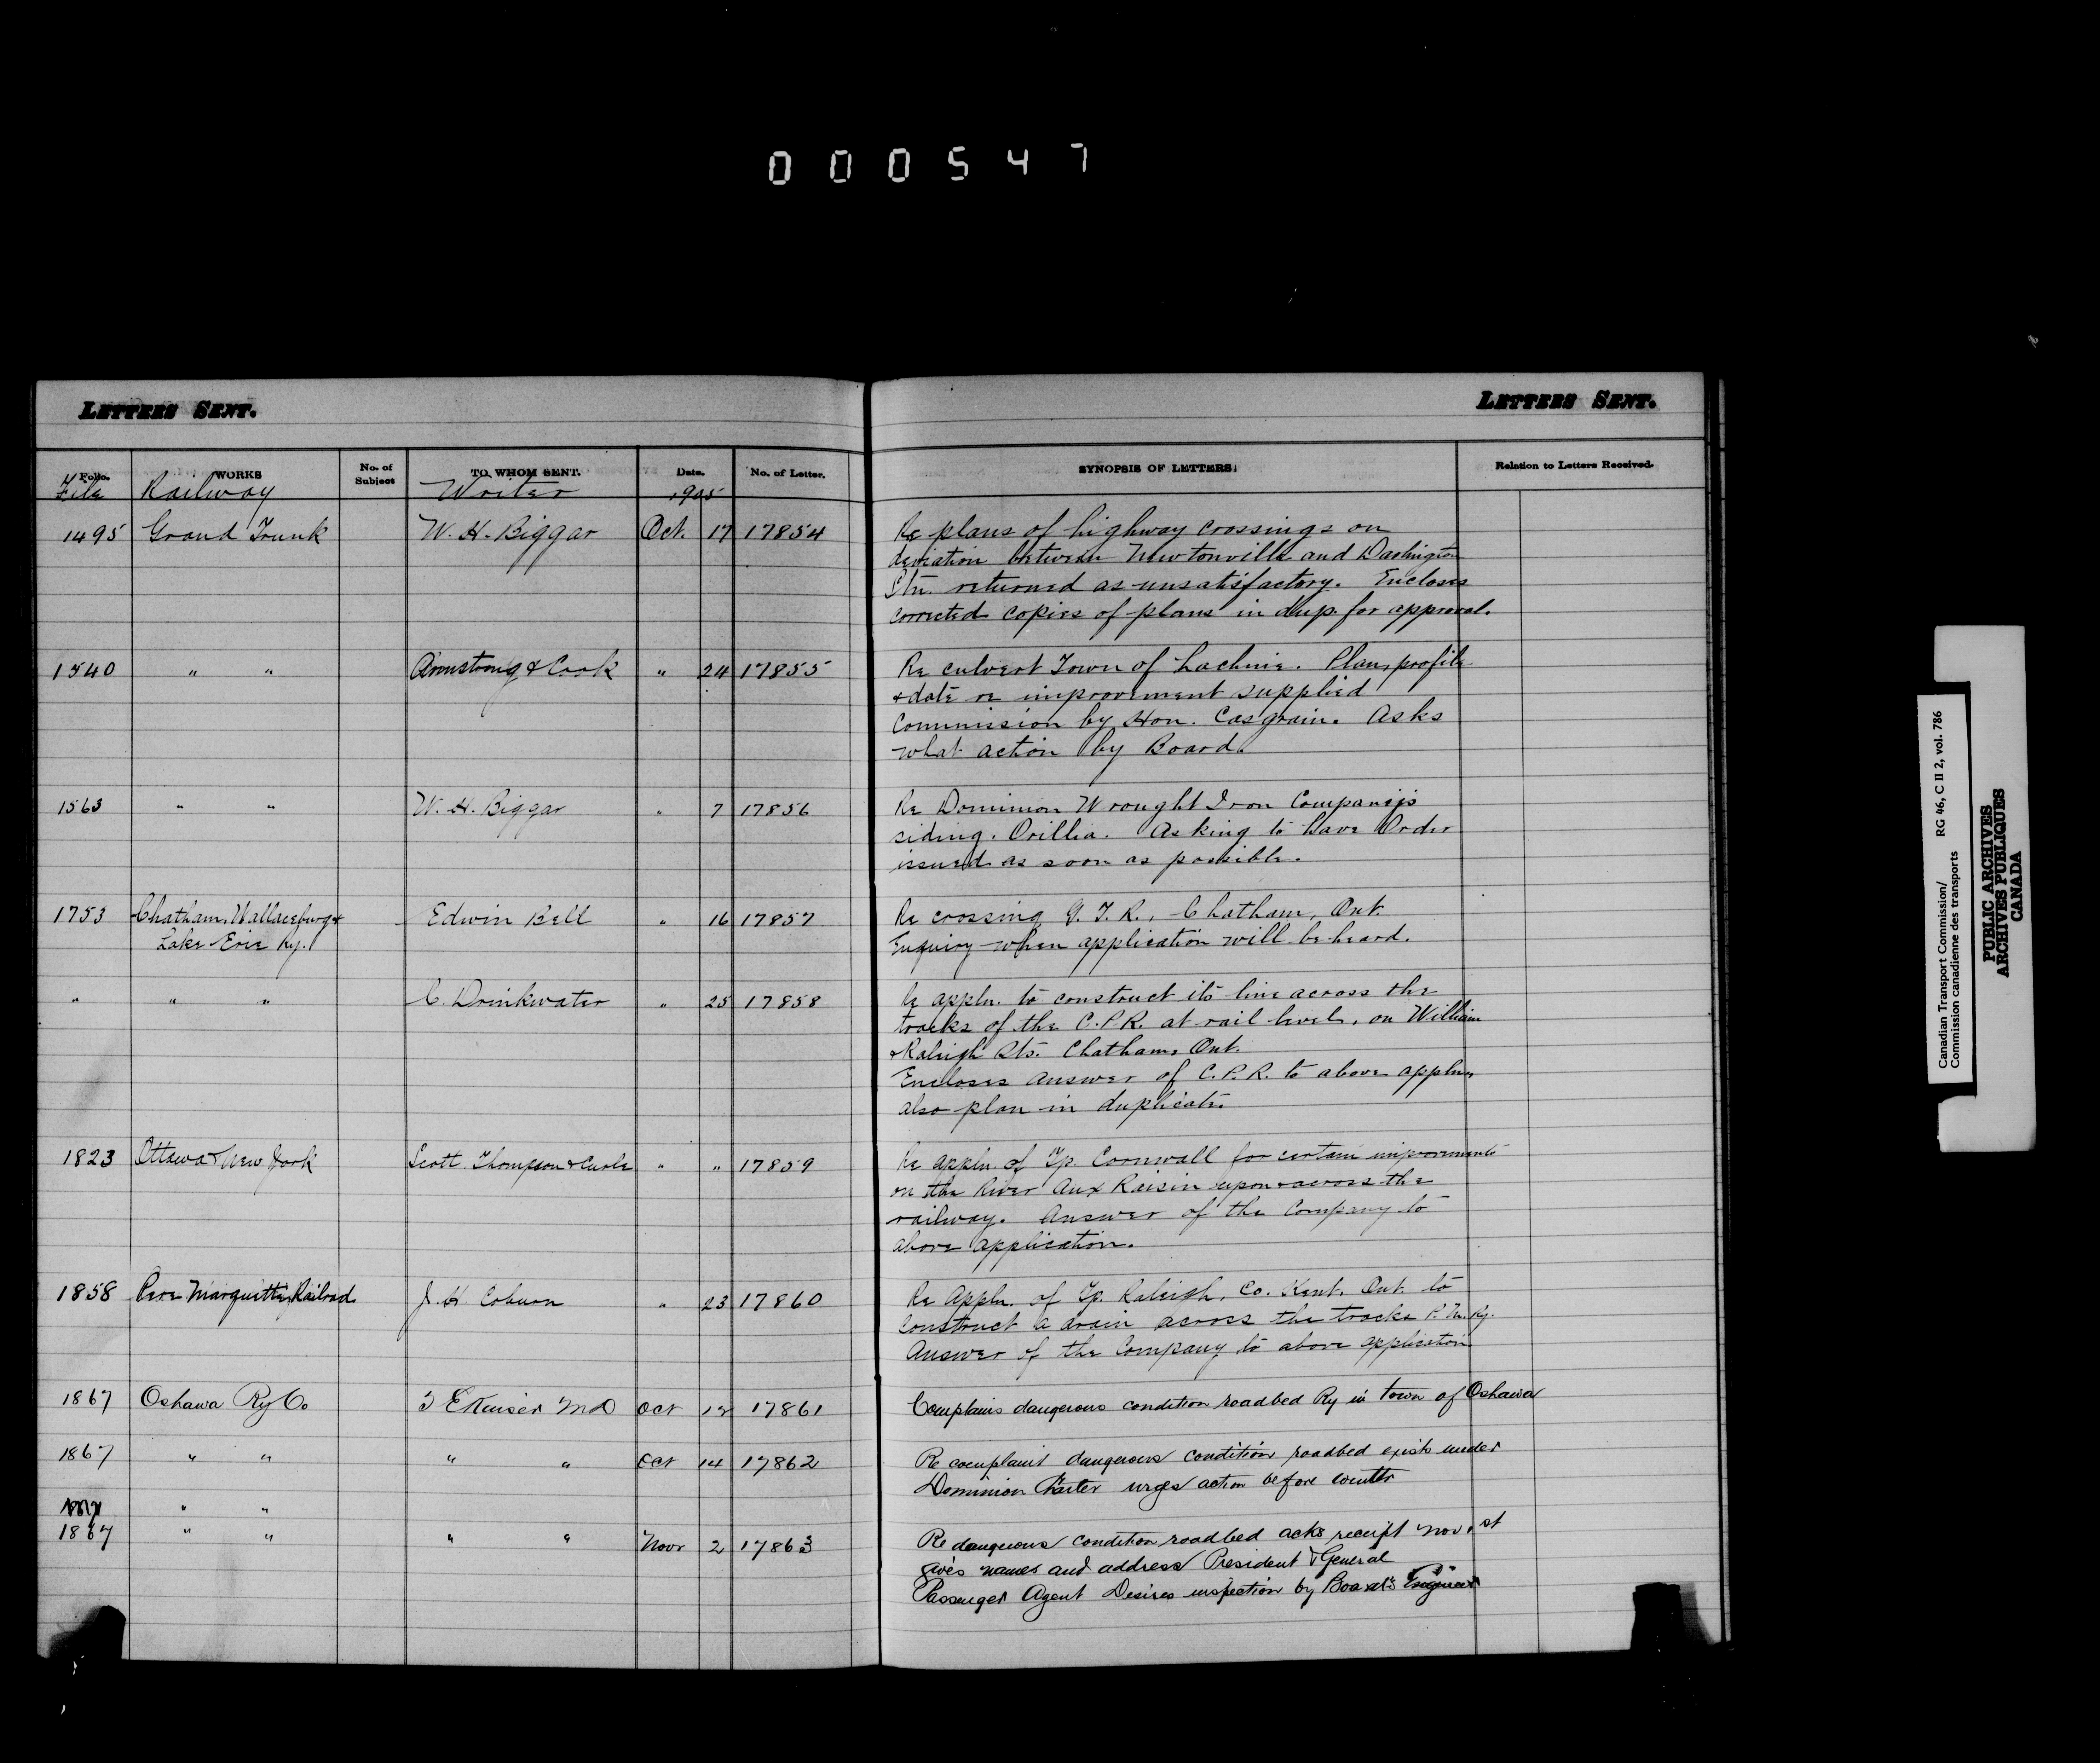 0 0 0 5 4 7
LETTERS SENT.
LETTERS SENT.
Folio. WORKS No. of Subject TO WHOM SENT. Date. No. of Letter. SYNOPSIS OF LETTERS. Relation to Letters Received.
File Railway Writer 1905
1495 Grand Trunk W. H. Biggar Oct. 17 17854 Re plans of highway crossings on
deviation between Newtonville and Darlington
Stn. returned as unsatisfactory. Encloses
corrected copies of plans in dup. for approval.
1540 " " Armstrong & Cook " 24 17855 Re culvert Town of Lachine. Plan, profile
& date re improvement supplied
Commission by Hon. Casgrain. Asks
what action by Board.
1563 " " W. H. Biggar " 7 17856 Re Dominion Wrought Iron Company's
siding. Orillia. Asking to have Order
issued as soon as possible.
1753 Chatham, Wallaceburg & Edwin Bell " 16 17857 Re crossing G. T. R., Chatham, Ont.
Lake Erie Ry. Enquiry when application will be heard.
" " " C. Drinkwater " 25 17858 Re appln. to construct its line across the
tracks of the C.P.R. at rail level, on William
& Raleigh Sts. Chatham, Ont.
Encloses answer of C.P.R. to above appln.,
also plan in duplicate.
1823 Ottawa & New York Scott Thompson & Curle " " 17859 Re appln. of Tp. Cornwall for certain improvements
on the River Aux Raisin upon & across the
railway. Answer of the Company to
above application.
1858 Pere Marquette Railroad J. H. Coburn " 23 17860 Re Appln. of Tp. Raleigh, Co. Kent, Ont. to
construct a drain across the tracks P. M. Ry.
Answer of the Company to above application
1867 Oshawa Ry Co T E Kaiser MD Oct 12 17861 Complains dangerous condition roadbed Ry in town of Oshawa
1867 " " " " Oct 14 17862 Re complaint dangerous condition roadbed exists under
Dominion Charter urges action before winter
" "
1867 " " " " Novr 2 17863 Re dangerous condition roadbed acks receipt Nov. 1st
gives names and address President & General
Passenger Agent Desires inspection by Board's Engineer
Canadian Transport Commission/ RG 46, C II 2, vol. 786
Commission canadienne des transports
PUBLIC ARCHIVES
ARCHIVES PUBLIQUES
CANADA